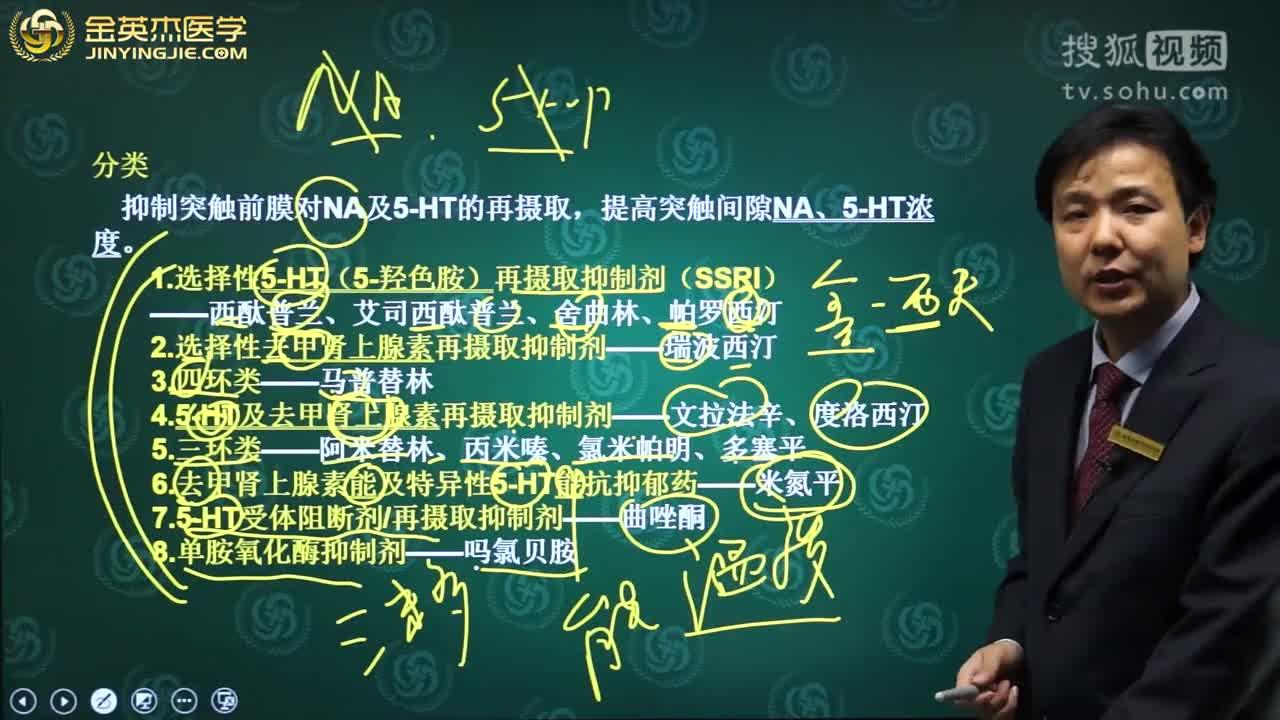 金英杰医学
JINYINGJIE.COM
搜狐视频
tv.sohu.com
NA. 5-
分类
抑制突触前膜对NA及5-HT的再摄取，提高突触间隙NA、5-HT浓
度。
1.选择性5-HT（5-羟色胺）再摄取抑制剂（SSRI）
——西酞普兰、艾司西酞普兰、舍曲林、帕罗西汀
2.选择性去甲肾上腺素再摄取抑制剂——瑞波西汀
3.四环类——马普替林
4.5-HT及去甲肾上腺素再摄取抑制剂——文拉法辛、度洛西汀
5.三环类——阿米替林、丙米嗪、氯米帕明、多塞平
6.去甲肾上腺素能及特异性5-HT能抗抑郁药——米氮平
7.5-HT受体阻断剂/再摄取抑制剂——曲唑酮
8.单胺氧化酶抑制剂——吗氯贝胺